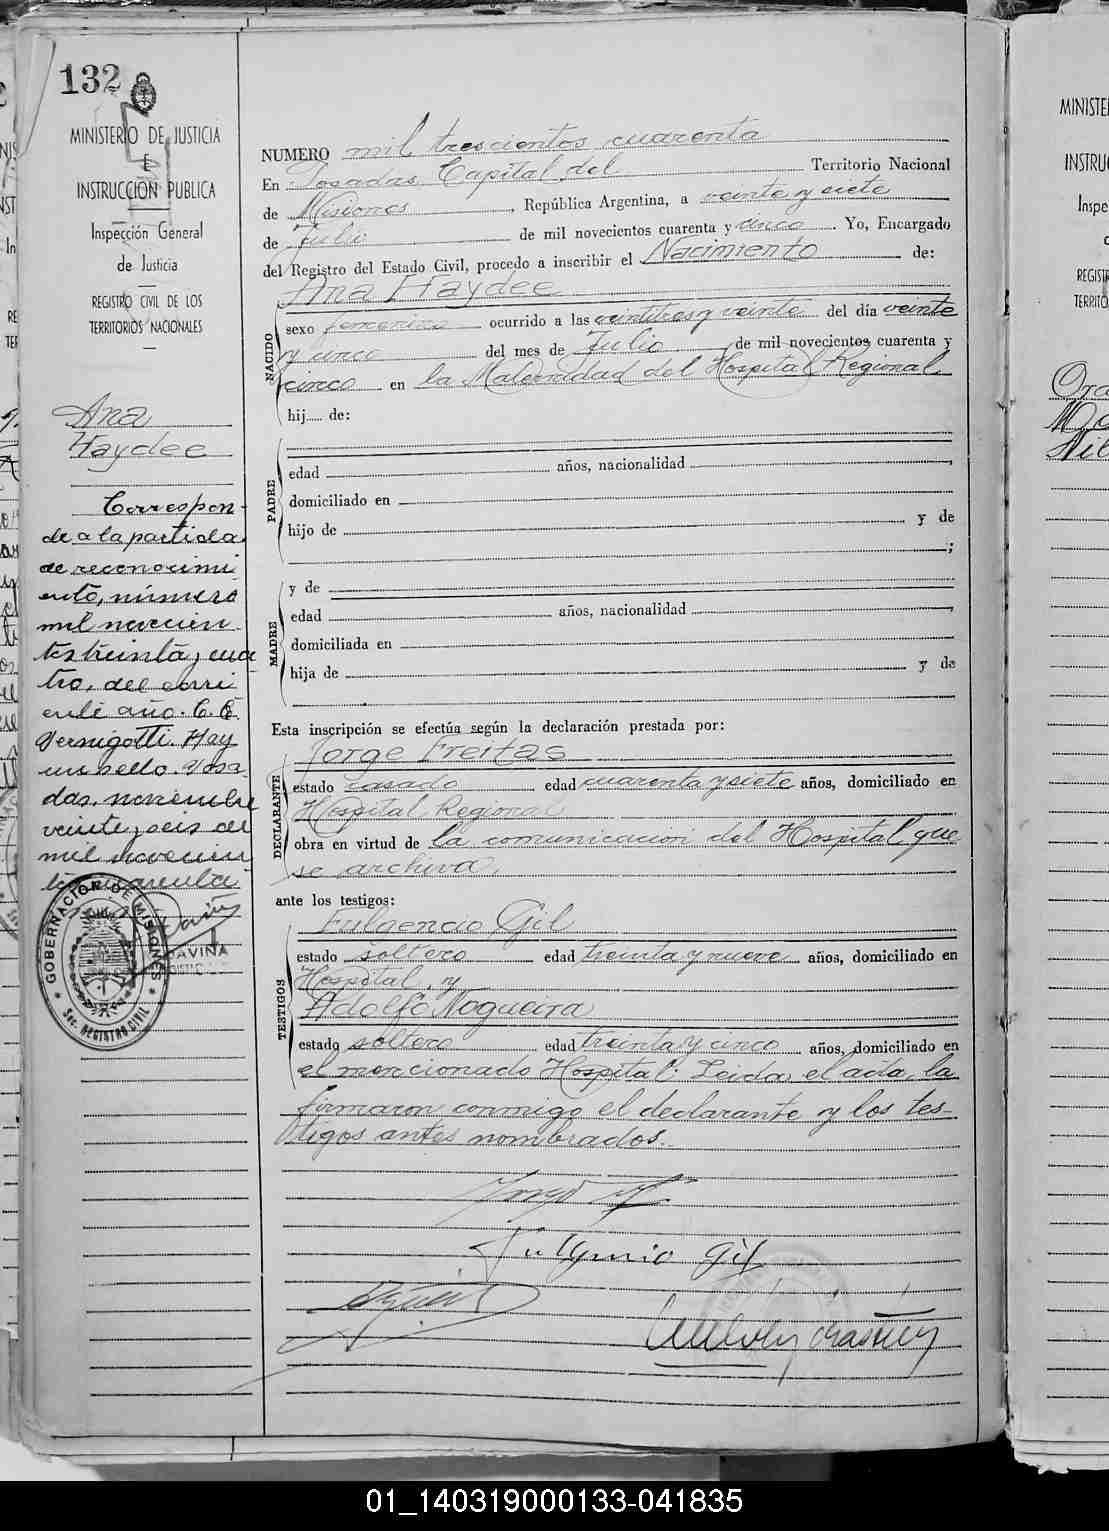 132
MINISTERIO DE JUSTICIA
E
INSTRUCCION PUBLICA
Inspección General
de Justicia
REGISTRO CIVIL DE LOS
TERRITORIOS NACIONALES
Ana
Haydee
Correspon-
de a la partida
de reconocimi
ento, número
mil novecien
tos treinta y cua
tro, del corri
ente año. C.E.
Vernigotti. Hay
un sello. Posa
das, noviembre
veinte y seis de
mil novecien
tos cuarenta
GOBERNACION DE MISIONES
Sec. REGISTRO CIVIL
NUMERO mil trescientos cuarenta
En Posadas, Capital del Territorio Nacional
de Misiones, República Argentina, a veinte y siete
de Julio de mil novecientos cuarenta y cinco. Yo, Encargado
del Registro del Estado Civil, procedo a inscribir el Nacimiento de:
Ana Haydee
NACIDO
sexo femenino ocurrido a las veintitres y veinte del día veinte
y cinco del mes de Julio de mil novecientos cuarenta y
cinco en la Maternidad del Hospital Regional.
hij..... de:
PADRE
edad años, nacionalidad ,
domiciliado en
hijo de y de
;
MADRE
y de
edad años, nacionalidad ,
domiciliada en
hija de y de
Esta inscripción se efectúa según la declaración prestada por:
Jorge Freitas
DECLARANTE
estado casado edad cuarenta y siete años, domiciliado en
Hospital Regional
obra en virtud de la comunicación del Hospital que
se archiva.
ante los testigos:
Fulgencio Gil
TESTIGOS
estado soltero edad treinta y nueve años, domiciliado en
Hospital, y
Adolfo Nogueira
estado soltero edad treinta y cinco años, domiciliado en
el mencionado Hospital. Leida el acta, la
firmaron conmigo el declarante y los tes-
tigos antes nombrados.
Fulgencio Gil
MINISTE
INSTRU
Inspe
REGIST
TERRITO
01_140319000133-041835